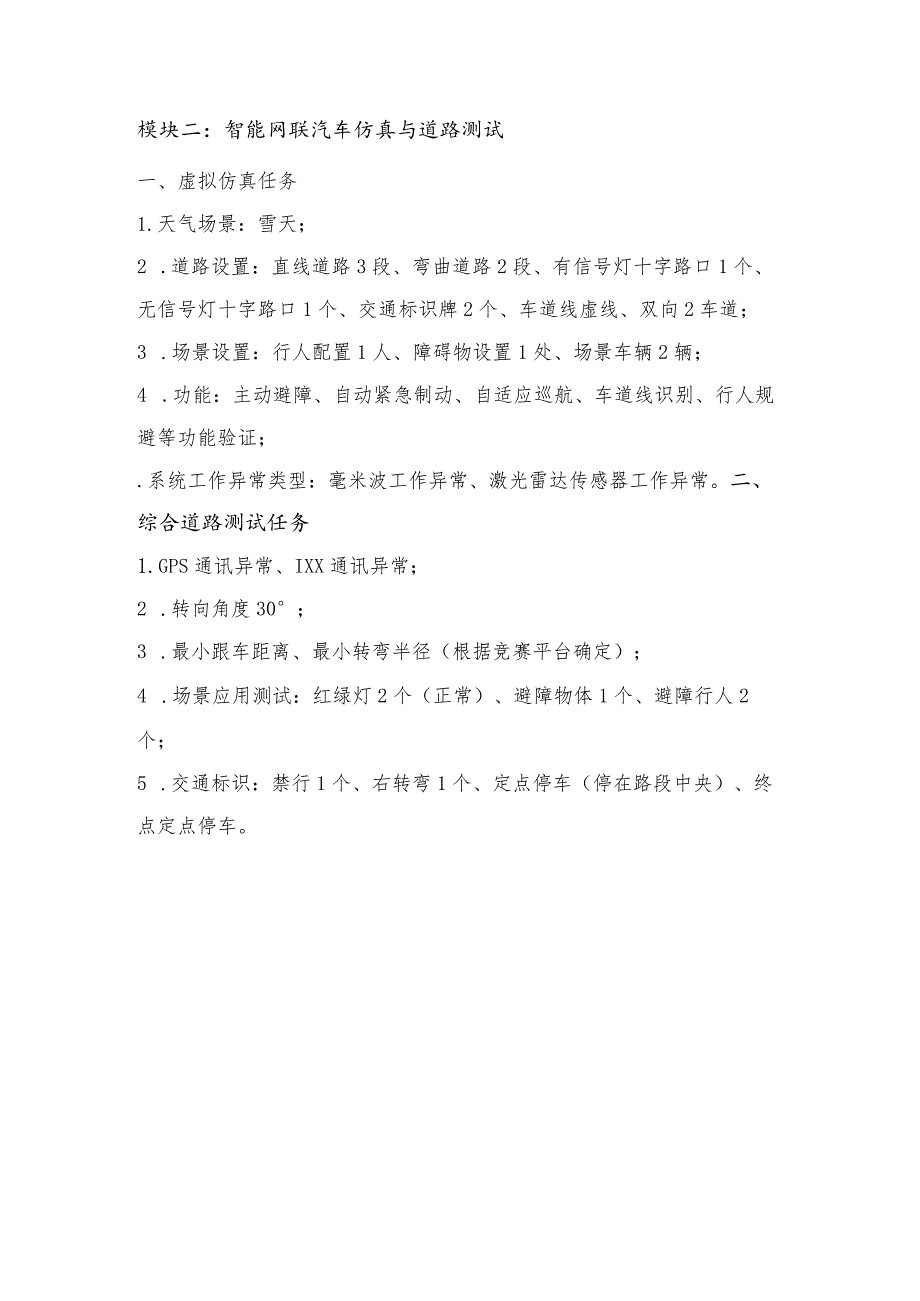 模块二：智能网联汽车仿真与道路测试
一、虚拟仿真任务
1.天气场景：雪天；
2 .道路设置：直线道路3段、弯曲道路2段、有信号灯十字路口1个、
无信号灯十字路口1个、交通标识牌2个、车道线虚线、双向2车道；
3 .场景设置：行人配置1人、障碍物设置1处、场景车辆2辆；
4 .功能：主动避障、自动紧急制动、自适应巡航、车道线识别、行人规
避等功能验证；
.系统工作异常类型：毫米波工作异常、激光雷达传感器工作异常。二、
综合道路测试任务
1.GPS通讯异常、IXX通讯异常；
2 .转向角度30°；
3 .最小跟车距离、最小转弯半径（根据竞赛平台确定）；
4 .场景应用测试：红绿灯2个（正常）、避障物体1个、避障行人2
个；
5 .交通标识：禁行1个、右转弯1个、定点停车（停在路段中央）、终
点定点停车。